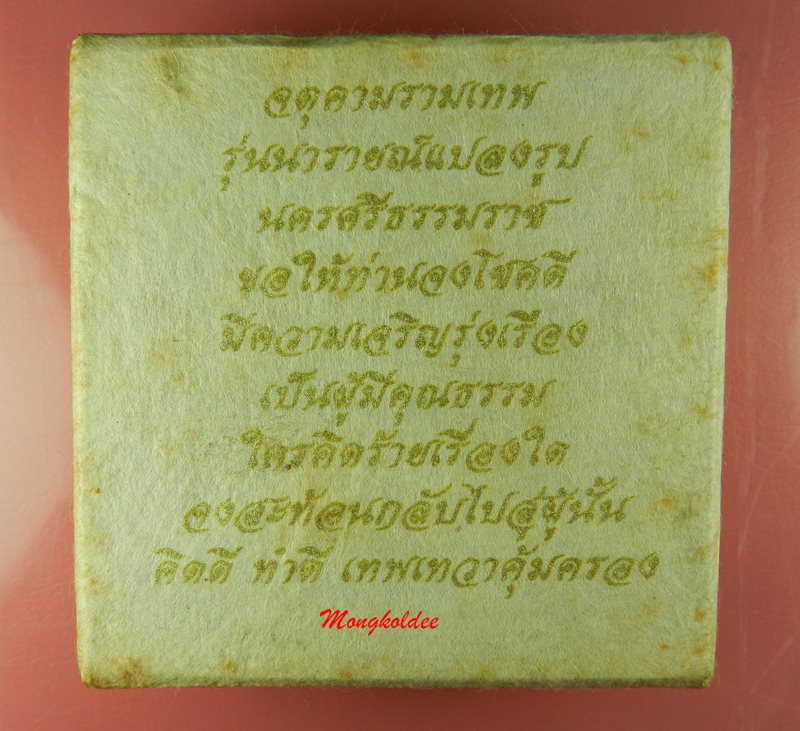 จตุคามรามเทพ
รุ่นนารายณ์แปลงรูป
นครศรีธรรมราช
ขอให้ท่านจงโชคดี
มีความเจริญรุ่งเรือง
เป็นผู้มีคุณธรรม
ใครคิดร้ายเรื่องใด
จงสะท้อนกลับไปสู่ผู้นั้น
คิดดี ทำดี เทพเทวาคุ้มครอง
Mongkoldee